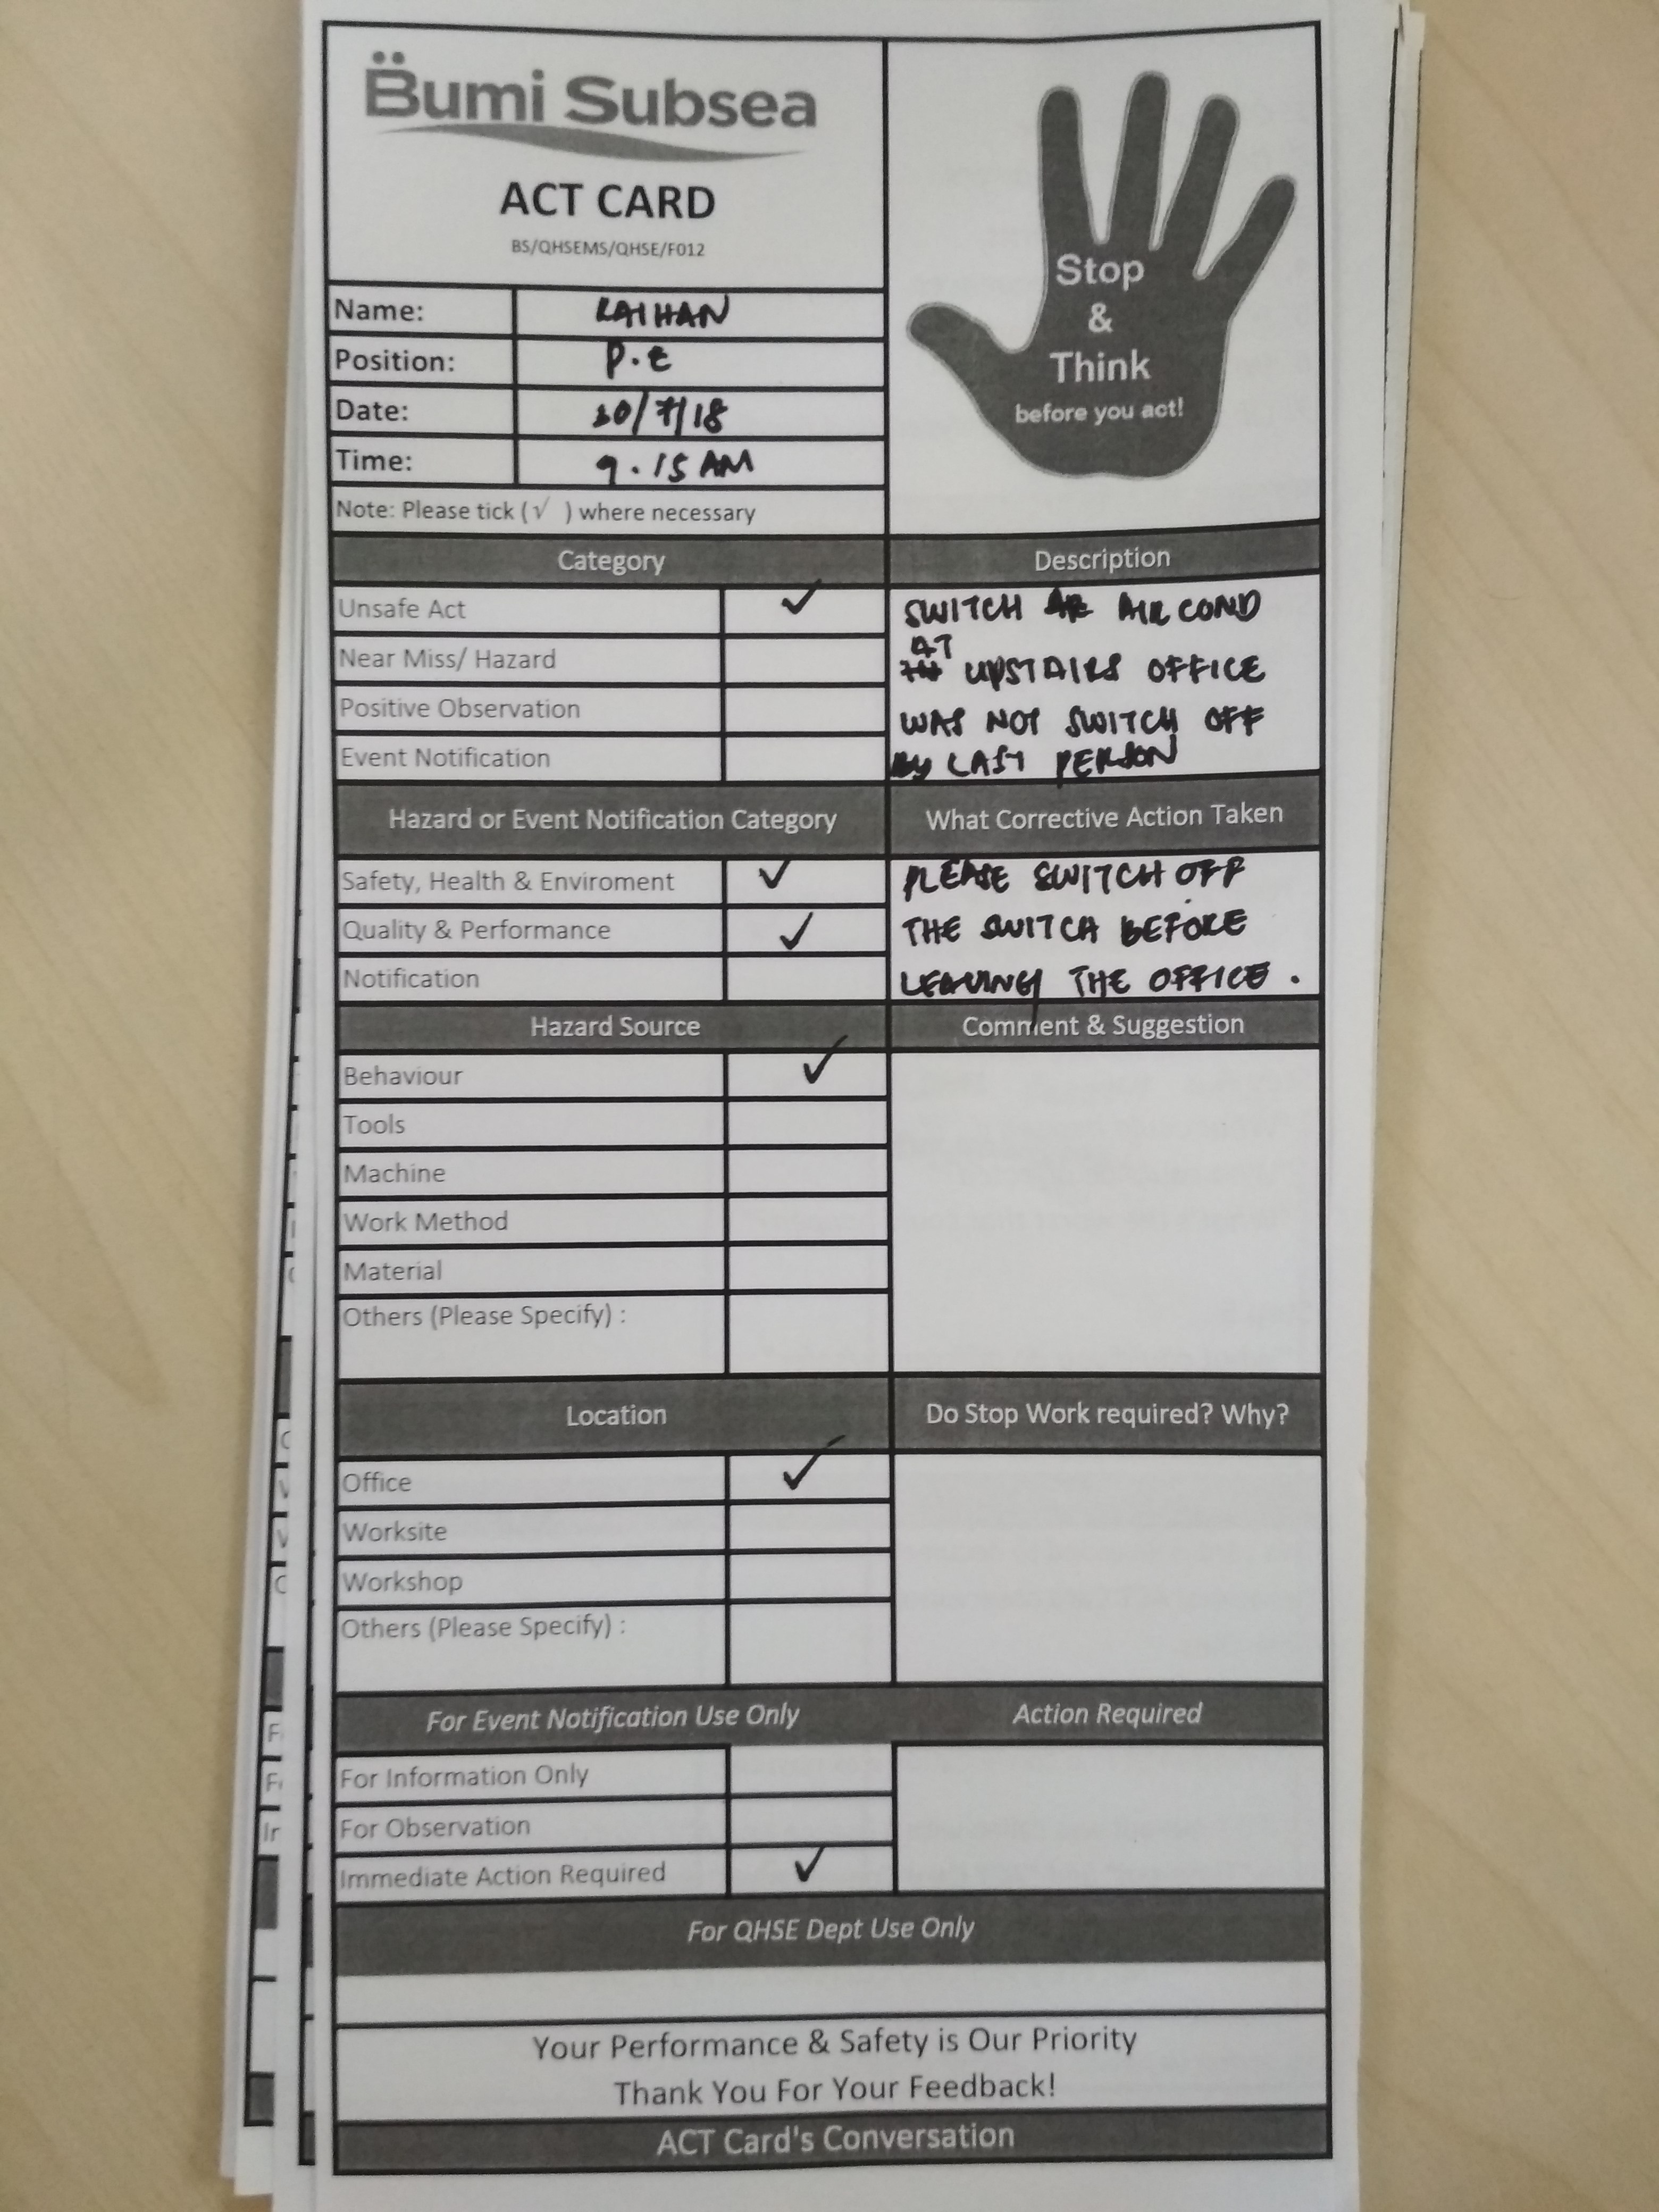 Bumi Subsea
ACT CARD
BS/QHSEMS/QHSE/F012
Stop
&
Think
before you act!
Name: RAIHAN
Position: P.E
Date: 30/7/18
Time: 9.15 AM
Note: Please tick (√ ) where necessary
Category
Unsafe Act ✓
Near Miss/ Hazard
Positive Observation
Event Notification
Description
SWITCH AIR COND
AT UPSTAIRS OFFICE
WAS NOT SWITCH OFF
By LAST PERSON
Hazard or Event Notification Category
Safety, Health & Enviroment ✓
Quality & Performance ✓
Notification
What Corrective Action Taken
PLEASE SWITCH OFF
THE SWITCH BEFORE
LEAVING THE OFFICE.
Hazard Source
Behaviour ✓
Tools
Machine
Work Method
Material
Others (Please Specify) :
Comment & Suggestion
Location
Office ✓
Worksite
Workshop
Others (Please Specify) :
Do Stop Work required? Why?
For Event Notification Use Only
For Information Only
For Observation
Immediate Action Required ✓
Action Required
For QHSE Dept Use Only
Your Performance & Safety is Our Priority
Thank You For Your Feedback!
ACT Card's Conversation